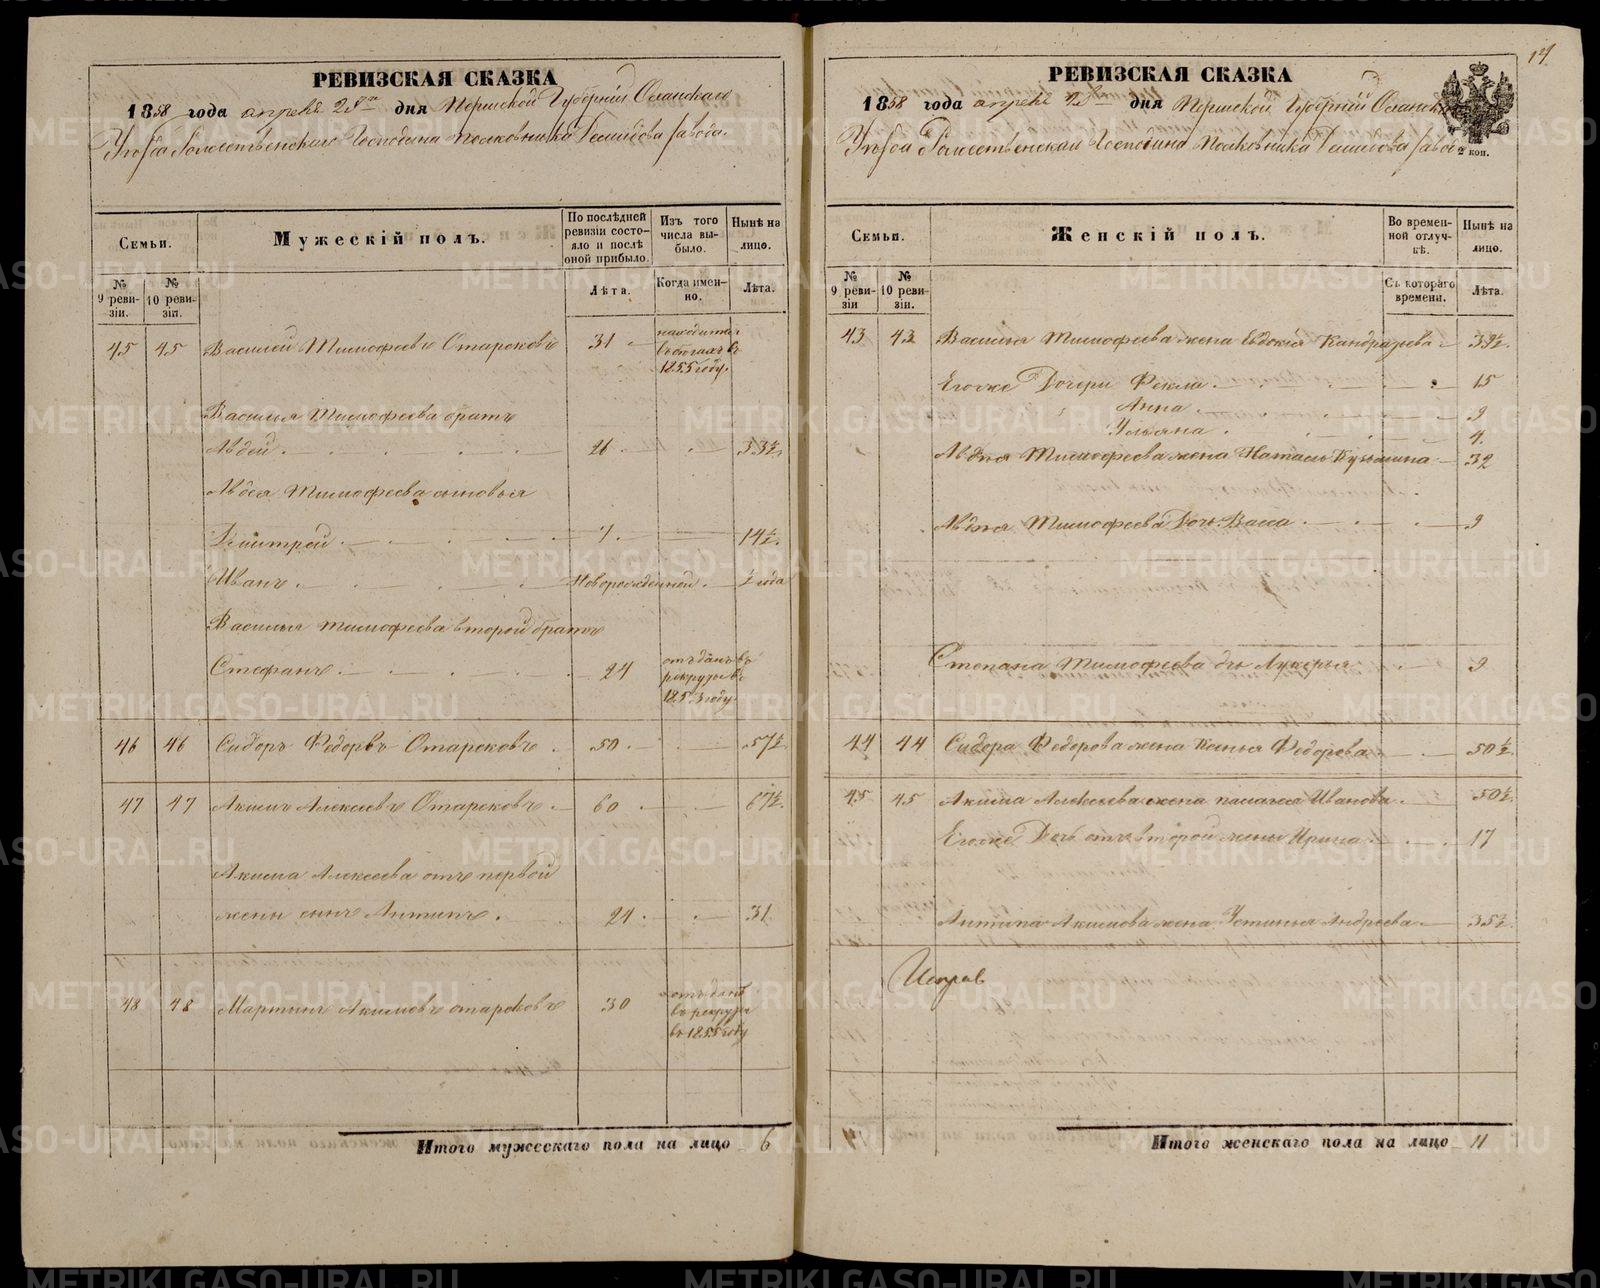 РЕВИЗСКАЯ СКАЗКА
1858 года апреля дня Пермской Губернии Осинскаго
Уезда Рожественскаго Господина Полковника Демидова завода.
Семьи.
Мужескій полъ.
По послѣдней ревизіи состояло и послѣ оной прибыло.
Изъ того числа выбыло.
Нынѣ на лицо.
№ 9 ревизіи.
№ 10 ревизіи.
Лѣта.
Когда именно.
Лѣта.
45 45 Василей Тимофеевъ 31 находится в бегахъ въ 1855 году.
Василья Тимофеева братъ
Авдей 26 33½
Авдея Тимофеева сыновья
Дмитрей 7 14½
Иванъ Новорожденной ½ года
Василья Тимофеева второй братъ
Стефанъ 24 отъданъ въ рекруты въ 1853 году
46 46 Сидоръ Федоровъ Отарсковъ 50 57½
47 47 Акимъ Алексеевъ Отарсковъ 60 67½
Акима Алексеева отъ первой
жены сынъ Антипъ 24 31
48 48 Мартинъ Акимовъ 30 отъданъ въ рекруты въ 1855 году
Итого мужескаго пола на лицо 6
РЕВИЗСКАЯ СКАЗКА
1858 года апреля дня Пермской Губерніи Осинскаго
Уезда Рожественскаго Господина Полковника Демидова завода
2 коп.
Семьи.
Женскій полъ.
Во временной отлучкѣ.
Нынѣ на лицо.
№ 9 ревизіи
№ 10 ревизіи.
Съ котораго времени.
Лѣта.
43 43 Василья Тимофеева жена Евдокія
Егоже Дочери Фекла 15
Анна 9
Ульяна 4
Авдея Тимофеева жена Наталья Кузмина 32
Авдея Тимофеева Дочь Васса 9
Степана Тимофеева дъ Лукерья 9
44 44 Сидора Федорова жена Федорова 50½
45 45 Акима Алексеева жена Иванова 50½
Егоже Дочь отъ второй жены Ирина 17
Антипа Акимова жена Устинья Андреева 35½
Итого женскаго пола на лицо 11
METRIKI.GASO-URAL.RU